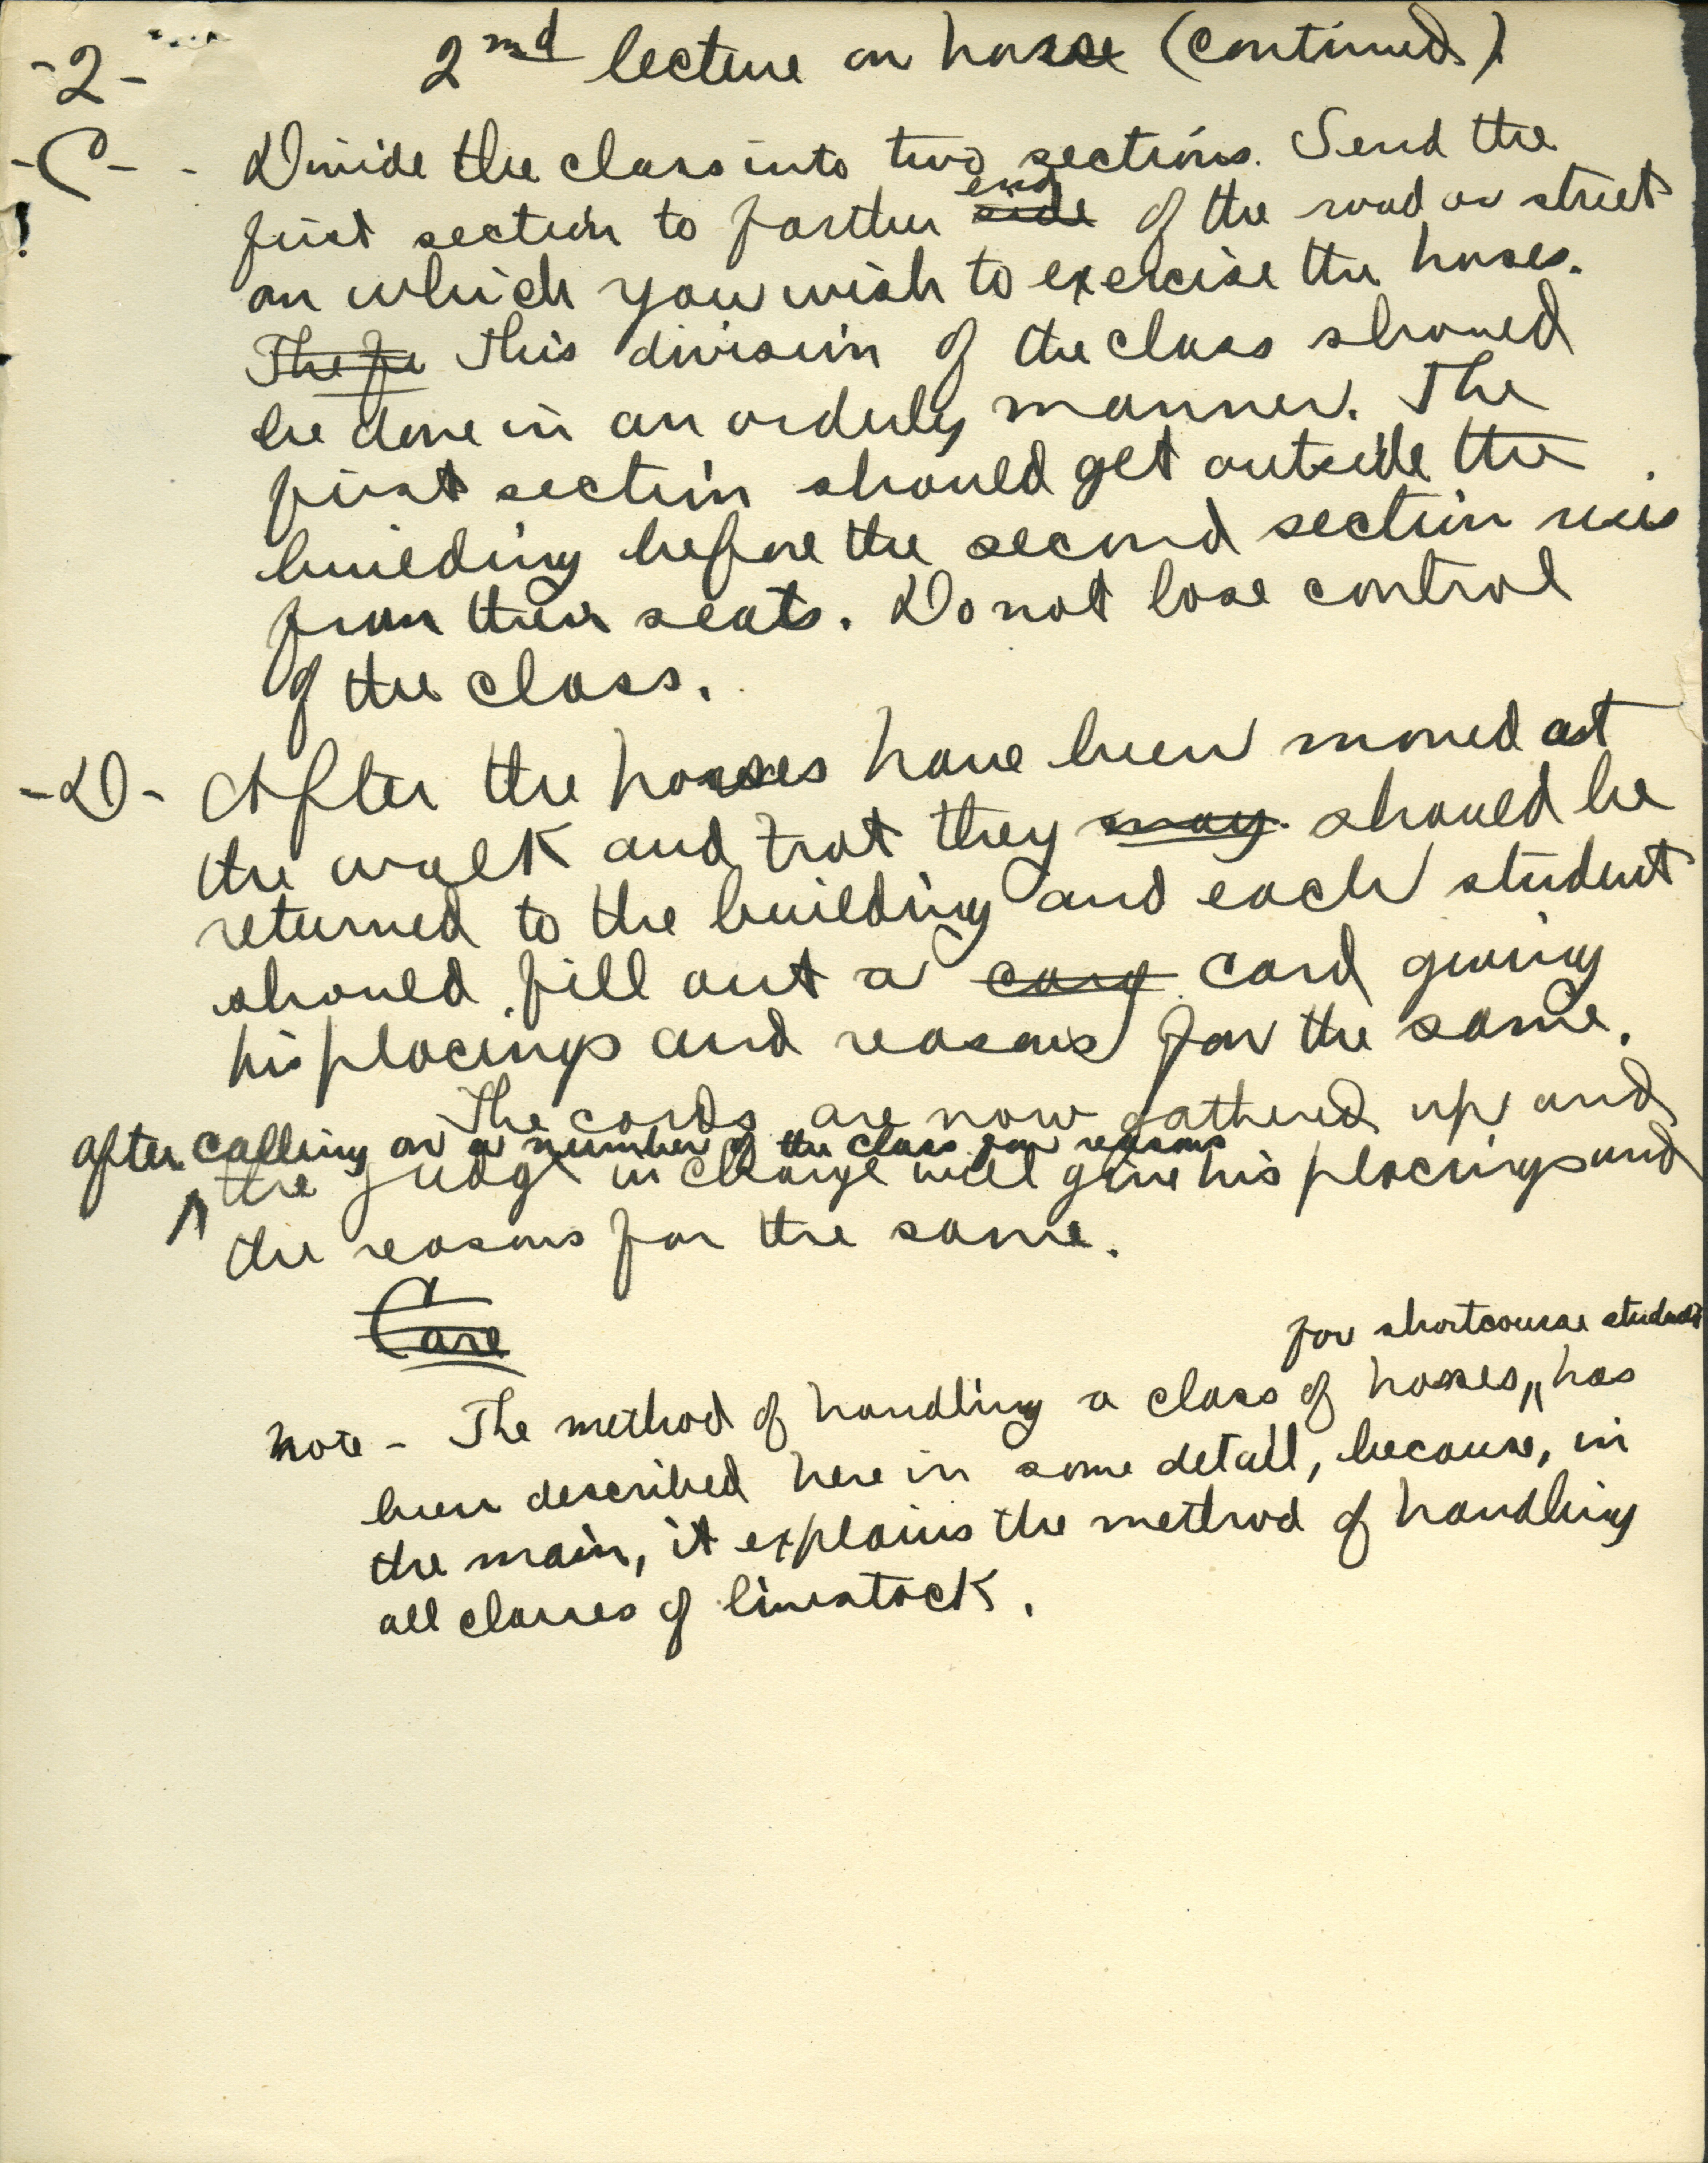 -2- 2nd lecture on horse (continued)
-C- - Divide the class into two sections. Send the
end
first section to farther side of the road or street
on which you wish to exercise the horses.
The fi This division of the class should
be done in an orderly manner. The
first section should get outside the
building before the second section rises
from their seats. Do not lose control
of the class.
-D- After the horses have been moved at
the walk and trot they may should be
returned to the building and each student
should fill out a card giving
his placings and reasons for the same.
The cards are now gathered up and
after calling on a number of the class for reasons
the judge in charge will give his placings and
the reasons for the same.
Care
for shortcourse students
Note - The method of handling a class of horses, has
been described here in some detail, because, in
the main, it explains the method of handling
all classes of livestock.